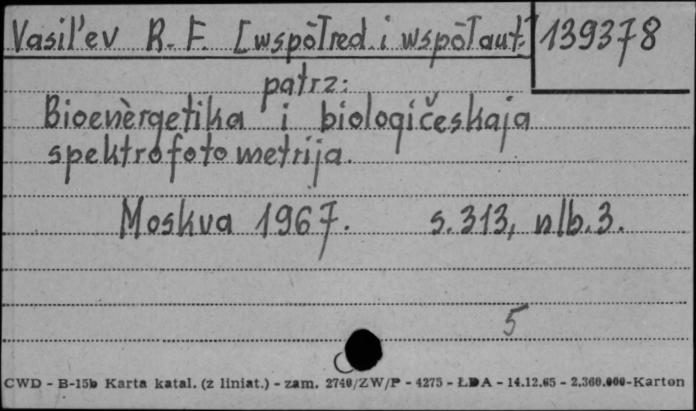 Vasil'ev R. F. [współred. i współaut.] 139378
patrz:
Bioenèrgetika i biologičeskaja
spektrofotometrija.
Moskva 1967. s. 313, nlb. 3.
5
CWD - B-15b Karta katal. (z liniat.) - zam. 2740/ZW/P - 4275 - ŁDA - 14.12.65 - 2.360.000-Karton